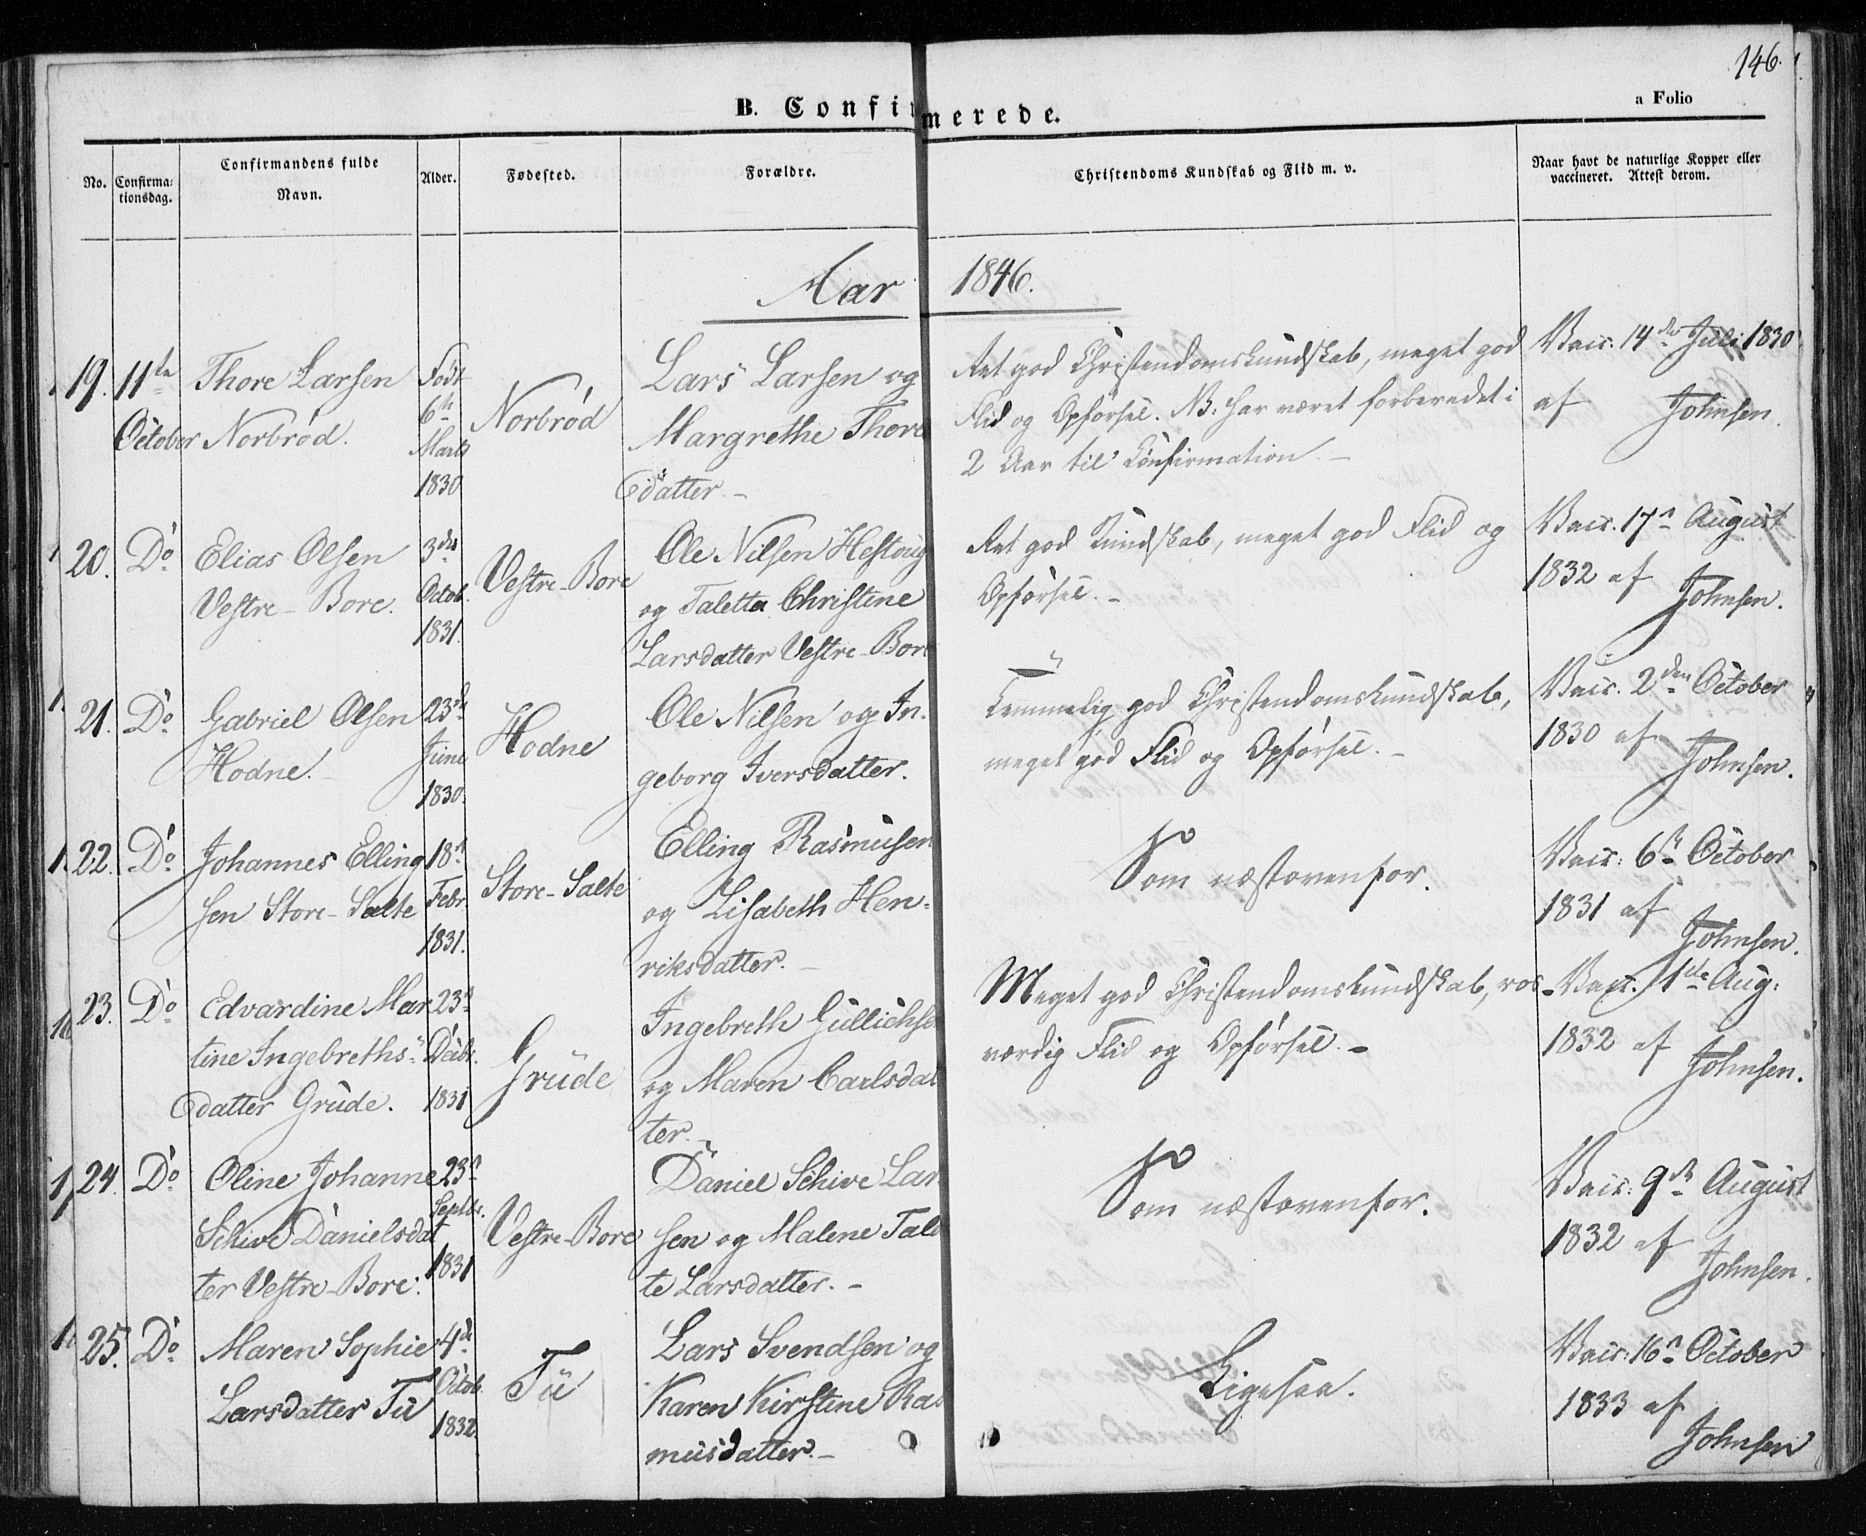 146.
B. Confirmerede.
a Folio
No.
Confirma-
tionsdag.
Confirmandens fulde
Navn.
Alder.
Fødested.
Forældre.
Christendoms Kundskab og Flid m. v.
Naar havt de naturlige Kopper eller
vaccineret. Attest derom.
Aar 1846.
19. 11te
October
Thore Larsen
Norbrød.
Født
6te
Marts
1830
Norbrød
Lars Larsen og
Margrethe Thore
datter. –
Ret god Christendomskundskab, meget god
Flid og Opførsel. NB: har været forberedet i
2 Aar til Confirmation. –
Vacc. 14de Juli 1830
af Johnsen.
20. Do
Elias Olsen
Vestre-Bore.
3die
Octob.
1831.
Vestre-Bore
Ole Nilsen Hestoug
og Taletta Christine
Larsdatter Vestre-Bore
Ret god Kundskab, meget god Flid og
Opførsel. –
Vacc. 17n August
1832 af
Johnsen.
21. Do
Gabriel Olsen
Hodne.
23de
Juni
1830.
Hodne
Ole Nilsen og In-
geborg Iversdatter.
Temmelig god Christendomskundskab,
meget god Flid og Opførsel. –
Vacc. 2den October
1830 af
Johnsen.
22. Do
Johannes Elling
sen Store-Salte
18n
Febr.
1831.
Store-Salte
Elling Rasmusen
og Lisabeth Hen-
riksdatter. –
Som næstovenfor.
Vacc: 6te October
1831 af
Johnsen.
23. Do
Edvardine Mar
tine Ingebreths-
datter Grude.
23n
Decbr.
1831
Grude
Ingebreth Gullichse
og Maren Carlsdat
ter. –
Meget god Christendomskundskab, ros-
værdig Flid og Opførsel. –
Vacc. 1ste Aug:
1832 af
Johnsen.
24. Do
Oline Johanne
Schive Danielsdat
ter Vestre-Bore.
23n
Septbr.
1831
Vestre-Bore
Daniel Schive Lar
sen og Malene Tale
te Larsdatter. –
Som næstovenfor.
Vacc: 9de August
1832 af
Johnsen.
25. Do
Maren Sophie
Larsdatter Tu
4de
Octob.
1832
Tu
Lars Svendsen og
Karen Kirstine Ras
musdatter. –
Ligesaa.
Vacc: 16n October
1833 af
Johnsen